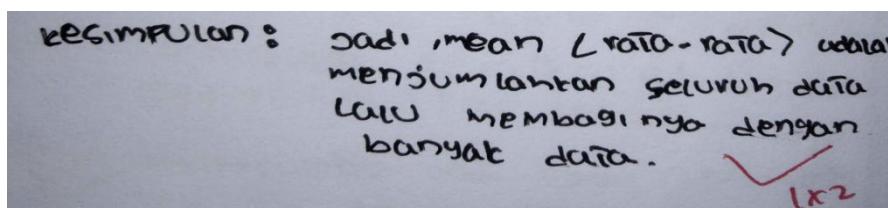 kesimpulan : Jadi , mean (rata-rata) adala
menjumlahkan seluruh data
Lalu membaginya dengan
banyak data.
1x2